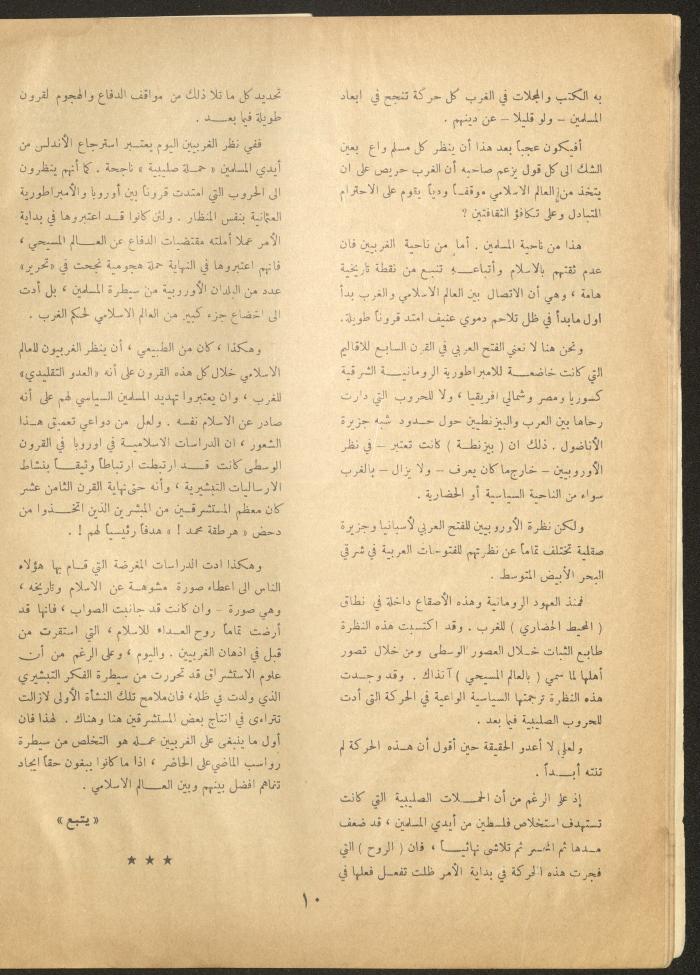 به الكتب والمجلات في الغرب كل حركة تنجح في ابعاد
المسلمين – ولو قليلا – عن دينهم .
أفيكون عجباً بعد هذا أن ينظر كل مسلم واع بعين
الشك الى كل قول يزعم صاحبه أن الغرب حريص على ان
يتخذ من العالم الاسلامي موقفاً ودياً يقوم على الاحترام
المتبادل وعلى تكافؤ الثقافتين ؟
هذا من ناحية المسلمين . أما من ناحية الغربيين فان
عدم ثقتهم بالاسلام وأتباعه تنبع من نقطة تاريخية
هامة ، وهي أن الاتصال بين العالم الاسلامي والغرب بدأ
اول مابدأ في ظل تلاحم دموي عنيف امتد قروناً طويلة.
ونحن هنا لا نعني الفتح العربي في القرن السابع للاقاليم
التي كانت خاضعة للامبراطورية الرومانية الشرقية
كسوريا ومصر وشمالي افريقيا ، ولا للحروب التي دارت
رحاها بين العرب والبيزنطيين حول حدود شبه جزيرة
الأناضول . ذلك ان ( بيزنطة ) كانت تعتبر – في نظر
الأوروبيين – خارج ما كان يعرف – ولا يزال – بالغرب
سواء من الناحية السياسية أو الحضارية .
ولكن نظرة الأوروبيين للفتح العربي لأسبانيا وجزيرة
صقلية تختلف تماماً عن نظرتهم للفتوحات العربية في شرقي
البحر الأبيض المتوسط .
فمنذ العهود الرومانية وهذه الأصقاع داخلة في نطاق
( المحيط الحضاري ) للغرب . وقد اكتسبت هذه النظرة
طابع الثبات خلال العصور الوسطى ومن خلال تصور
أهلها لما سمي ( بالعالم المسيحي ) آنذاك . وقد وجدت
هذه النظرة ترجمتها السياسية الواعية في الحركة التي أدت
للحروب الصليبية فيما بعد .
ولعلي لا أعدو الحقيقة حين أقول أن هذه الحركة لم
تنته أبداً .
إذ على الرغم من أن الحملات الصليبية التي كانت
تستهدف استخلاص فلسطين من أيدي المسلمين ، قد ضعف
مدها ثم انحسر ثم تلاشى نهائياً ، فان ( الروح ) التي
فجرت هذه الحركة في بداية الأمر ظلت تفعل فعلها في
تحديد كل ما تلا ذلك من مواقف الدفاع والهجوم لقرون
طويلة فيما بعد .
ففي نظر الغربيين اليوم يعتبر استرجاع الأندلس من
أيدي المسلمين « حملة صليبية » ناجحة . كما أنهم ينظرون
الى الحروب التي امتدت قروناً بين أوروبا والأمبراطورية
العثمانية بنفس المنظار . ولئن كانوا قد اعتبروها في بداية
الأمر عملا أملته مقتضيات الدفاع عن العالم المسيحي ،
فانهم اعتبروها في النهاية حملة هجومية نجحت في «تحرير»
عدد من البلدان الأوروبية من سيطرة المسلمين ، بل أدت
الى اخضاع جزء كبير من العالم الاسلامي لحكم الغرب .
وهكذا ، كان من الطبيعي ، أن ينظر الغربيون للعالم
الاسلامي خلال كل هذه القرون على أنه «العدو التقليدي»
للغرب ، وان يعتبروا تهديد المسلمين السياسي لهم على أنه
صادر عن الاسلام نفسه . ولعل من دواعي تعميق هذا
الشعور ، ان الدراسات الاسلامية في اوروبا في القرون
الوسطى كانت قد ارتبطت ارتباطاً وثيقاً بنشاط
الارساليات التبشيرية ، وأنه حتى نهاية القرن الثامن عشر
كان معظم المستشرقين من المبشرين الذين اتخذوا من
دحض « هرطقة محمد ! » هدفاً رئيسياً لهم ! .
وهكذا ادت الدراسات المغرضة التي قام بها هؤلاء
الناس الى اعطاء صورة مشوهة عن الاسلام وتاريخه ،
وهي صورة – وان كانت قد جانبت الصواب ، فانها قد
أرضت تماماً روح العداء للاسلام ، التي استقرت من
قبل في اذهان الغربيين . واليوم ، وعلى الرغم من أن
علوم الاستشراق قد تحررت من سيطرة الفكر التبشيري
الذي ولدت في ظله، فان ملامح تلك النشأة الأولى لازالت
تتراءى في انتاج بعض المستشرقين هنا وهناك . لهذا فان
أول ما ينبغي على الغربيين عمله هو التخلص من سيطرة
رواسب الماضي على الحاضر ، اذا ما كانوا يبغون حقاً ايجاد
تفاهم افضل بينهم وبين العالم الاسلامي .
« يتبع »
★ ★ ★
١٠